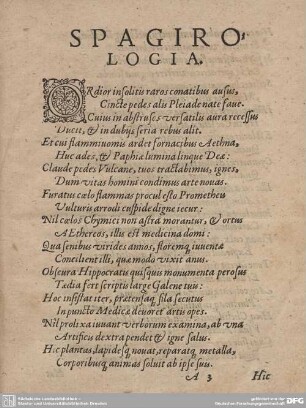 SPAGIRO-
LOGIA.
ORdior insolitis raros conatibus ausus,
Cincte pedes alis Pleiade nate faue.
Cuius in abstrusos versatilis aura recessus
Ducit, & in dubijs seria rebus alit.
Et cui flammiuomis ardet fornacibus Aethna,
Huc ades, & Paphiæ lumina linque Deæ:
Claude pedes Vulcane, tuos tractabimus, ignes,
Dum vitas homini condimus arte nouas.
Furatus cœlo flammas procul esto Prometheu
Vulturis arrodi cuspide digne iecur:
Nil cœlos Chymici non astra morantur, & ortus
AEthereos, illis est medicina domi:
Qua senibus virides annos, floremq́ iuuentæ
Concilient illi, quæ modo vixit anus.
Obscura Hippocratis quisquis monumenta perosus
Tædia fert scriptis large Galene tuis:
Hoc insistat iter, prætensaq́ fila secutus
In puncto Medicæ deuoret artis opes.
Nil prolixa iuuant verborum examina, ab vna
Artificis dextra pendet & igne salus.
Hic plantas, lapidesq́ nouat, reparatq́ metalla,
Corporibusq́ animas soluit ab ipse suis.
A 3
Hic